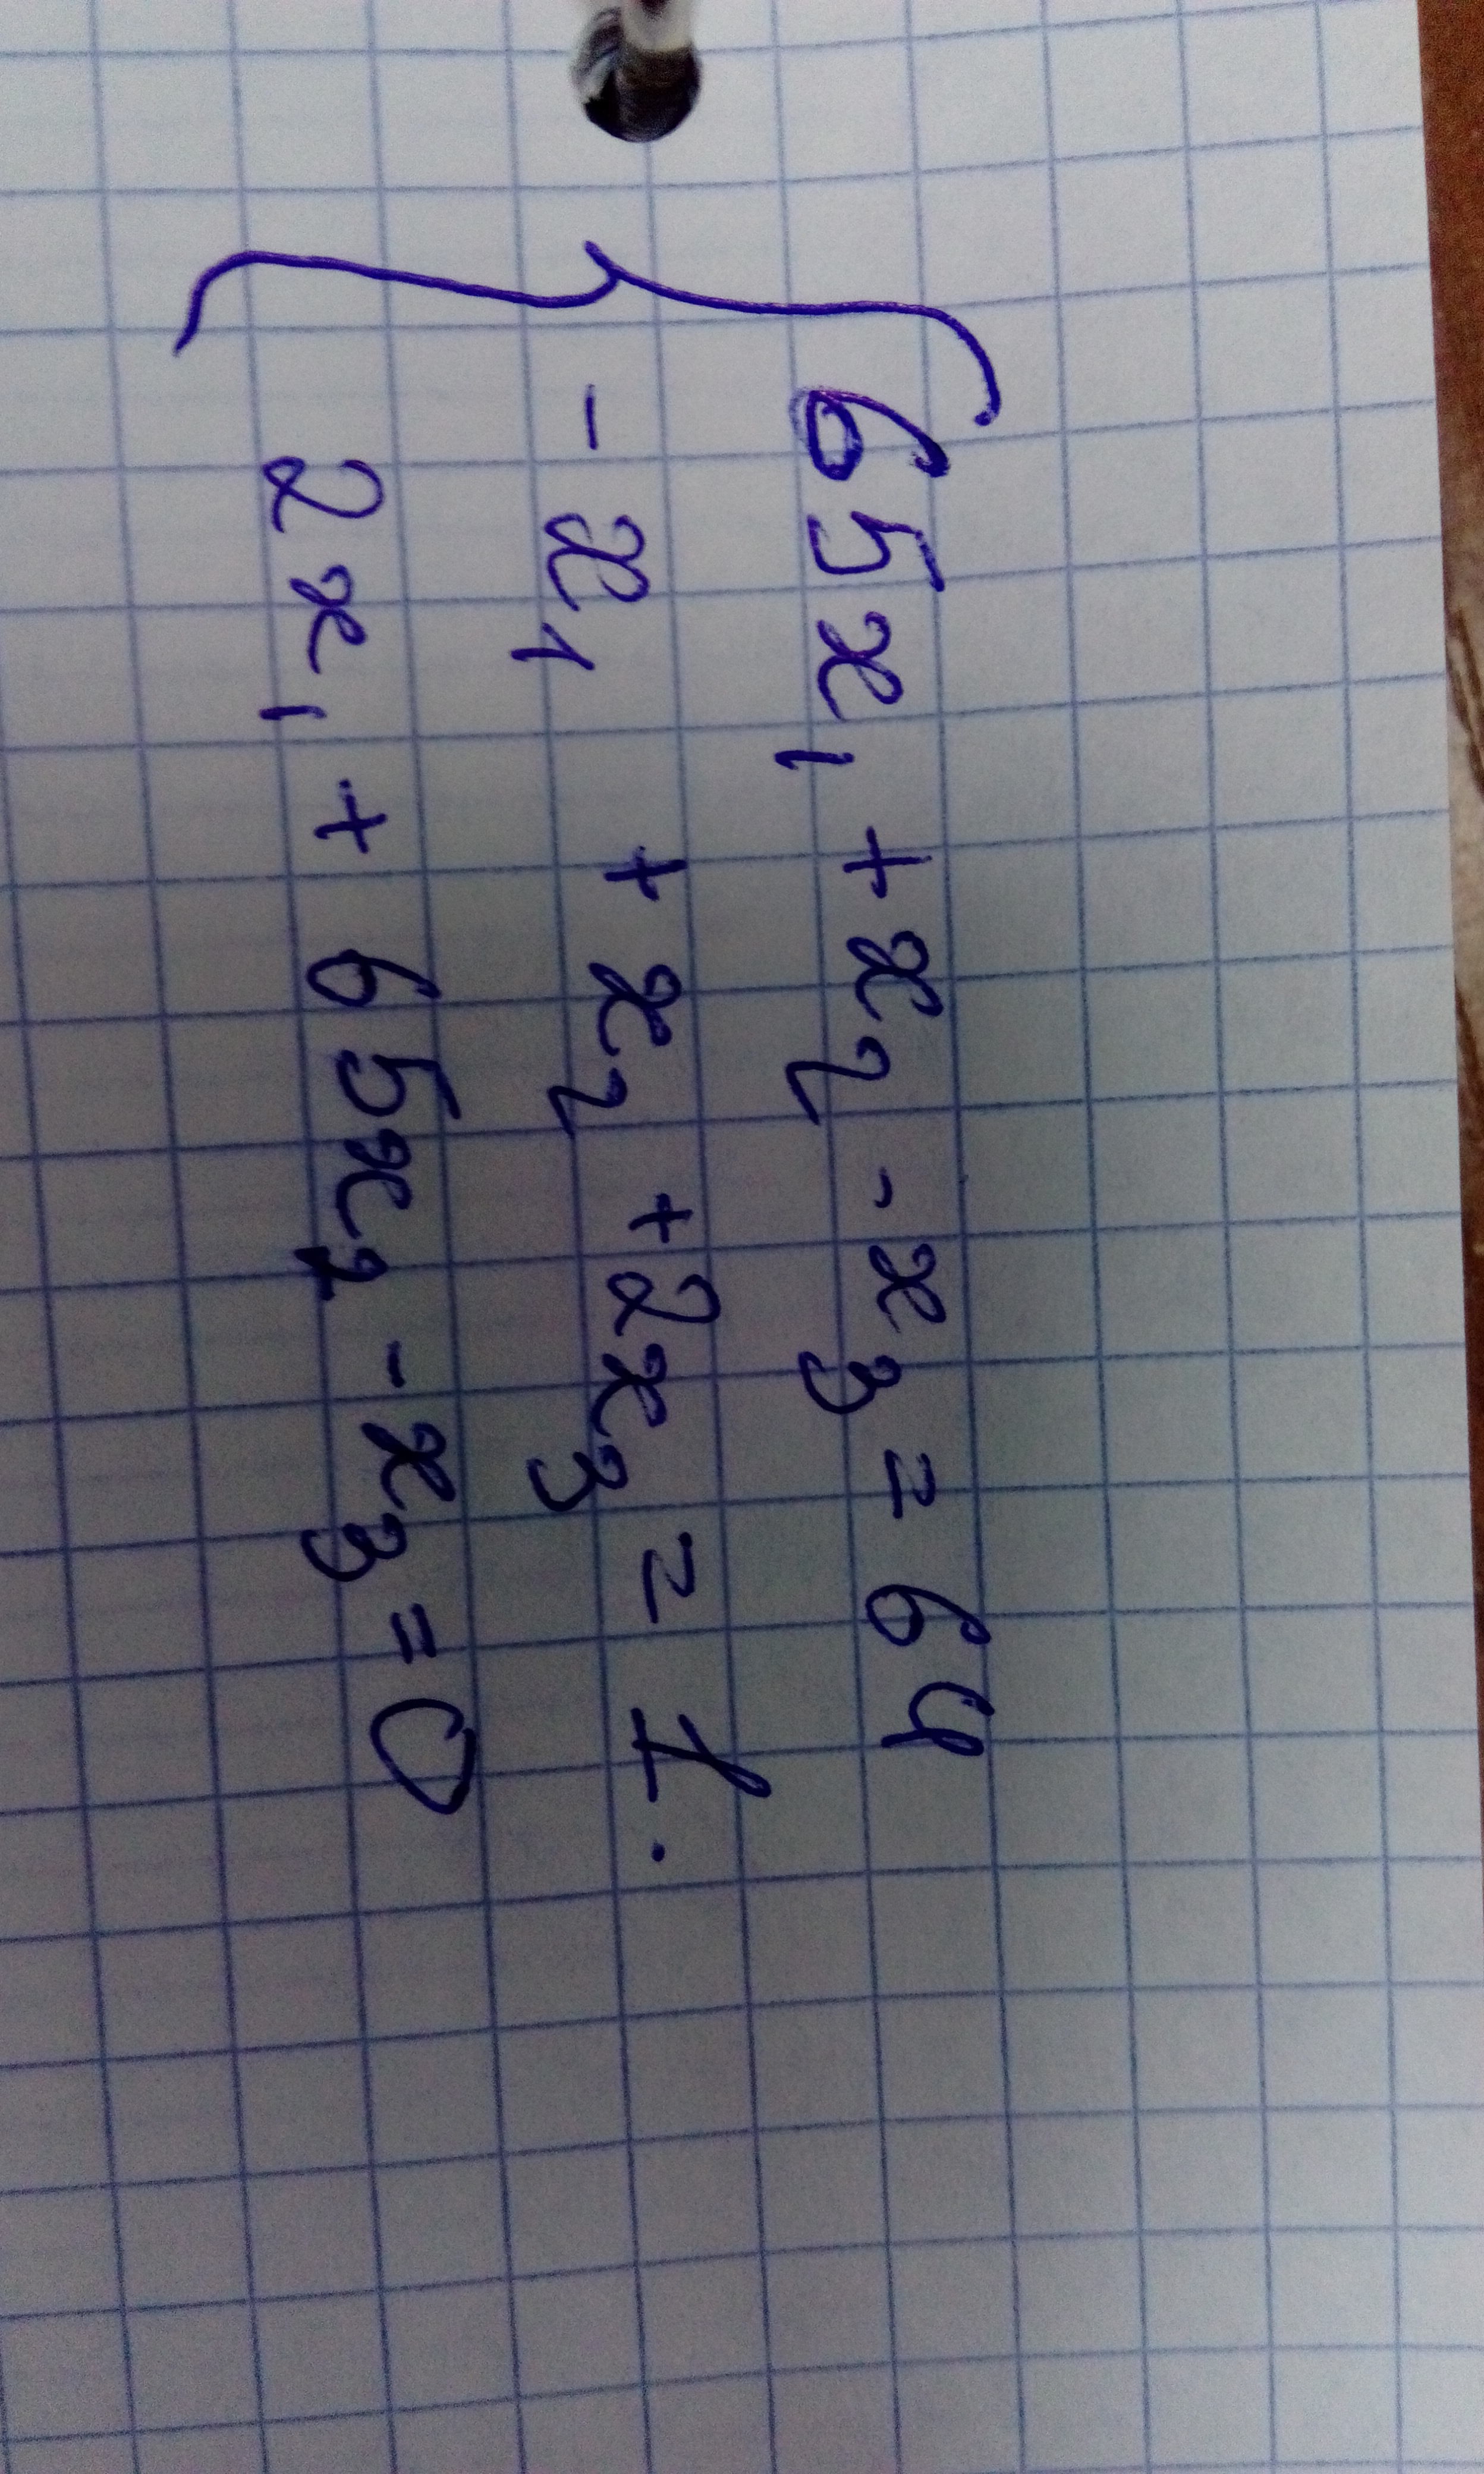 65x₁ + x₂ - x₃ = 64
- x₁ + x₂ + 2x₃ = 1.
2x₁ + 65x₂ - x₃ = 0